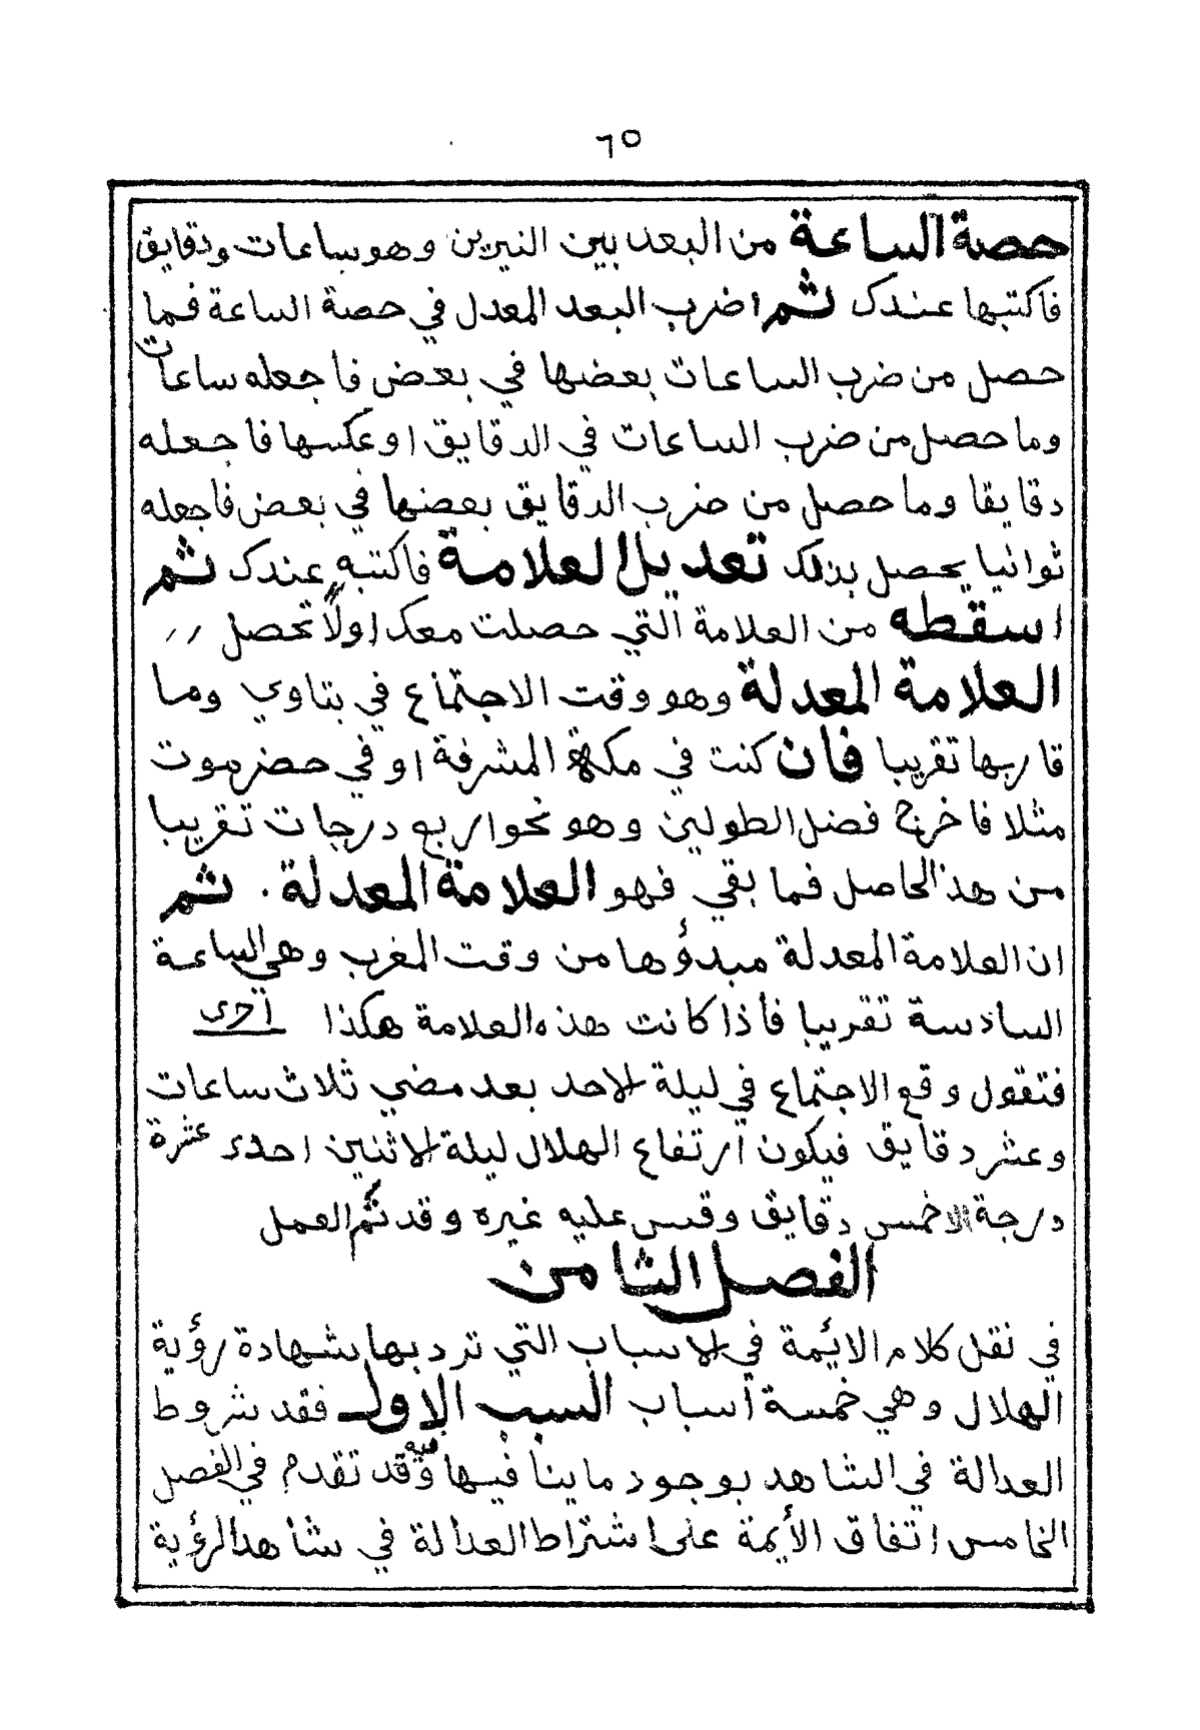 ٦٥
حصة الساعة من البعد بين النيرين وهو ساعات ودقايق
فاكتبها عندك ثم اضرب البعد المعدل في حصة الساعة فما
حصل من ضرب الساعات بعضها في بعض فاجعله ساعات
وما حصل من ضرب الساعات في الدقايق اوعكسها فاجعله
دقايقا وما حصل من ضرب الدقايق بعضها في بعض فاجعله
ثوانيا يحصل بذلك تعديل العلامة فاكتبه عندك ثم
اسقطه من العلامة التي حصلت معك اولاً تحصل
العلامة المعدلة وهو وقت الاجتماع في بتاوي وما
قاربها تقريبا فان كنت في مكة المشرفة او في حضرموت
مثلا فاخرج فضل الطولين وهو نحوا ربع درجات تقريبا
من هذا الحاصل فما بقي فهو العلامة المعدلة . ثم
ان العلامة المعدلة مبدؤها من وقت المغرب وهي الساعة
السادسة تقريبا فأذا كانت هذه العلامة هكذا
فتقول وقع الاجتماع في ليلة الاحد بعد مضي ثلاث ساعات
وعشر دقايق فيكون ارتفاع الهلال ليلة الاثنين احدى عشرة
درجة الاخمس دقايق وقس عليه غيره وقد تم العمل
الفصل الثامن
في نقل كلام الايمة في الاسباب التي ترد بها شهادة رؤية
الهلال وهي خمسة أسباب السبب الاول فقد شروط
العدالة في الشاهد بوجود ما ينافيها فيه وقد تقدم في الفصل
الخامس اتفاق الأيمة على اشتراط العدالة في شاهد الرؤية